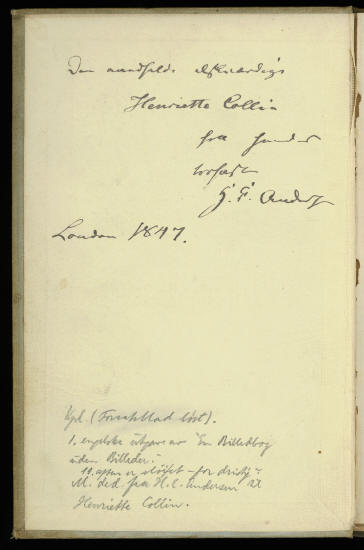 Den aandfulde elskværdige
Henriette Collin
fra hendes
H. C. Anders
London 1847.
Kpl. (Forsatsblad løst).
1. engelske udgave av "En Billedbog
uden Billeder".
M. ded. fra H. C. Andersen til
Henriette Collin.